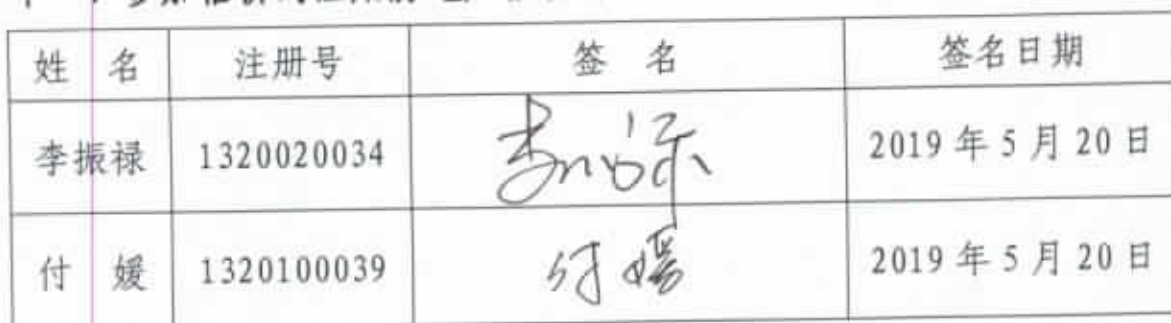 姓 名 注册号 签 名 签名日期
李振禄 1320020034 2019年5月20日
付 媛 1320100039 付媛 2019年5月20日